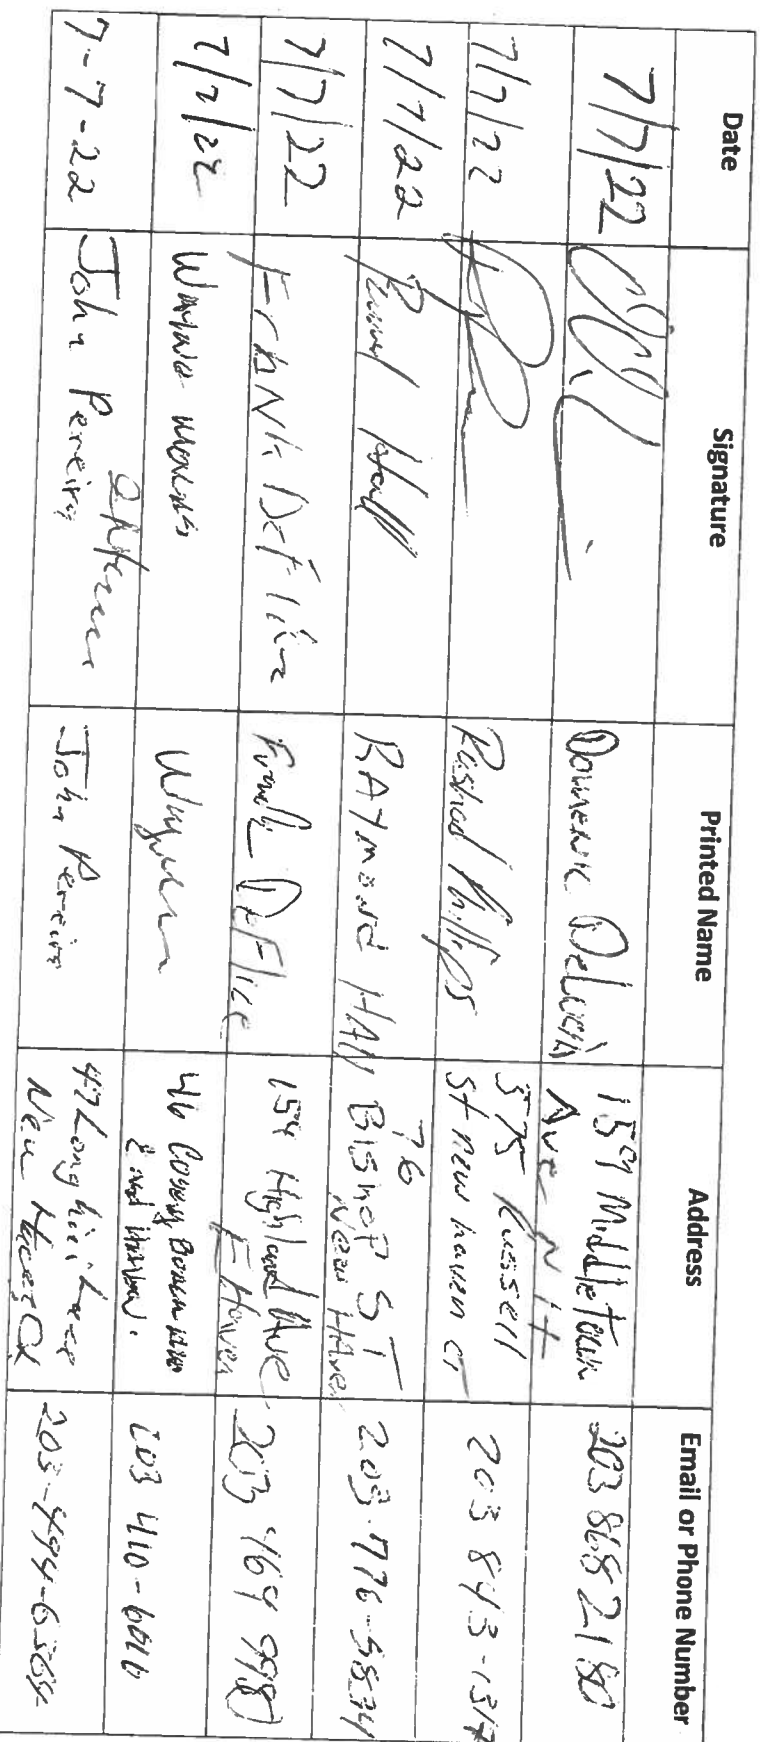 Date Signature Printed Name Address Email or Phone Number
7/7/22 Domenic DeLucia 159 Middletown Ave N H 203 868 2180
7/7/22 Rashad Phillips 575 Russell St new haven CT 203 843-1317
7/7/22 Hall RAYmond HAll 76 BISHOP ST New Haven 203-776-5834
7/7/22 Frank DeFlice Frank DeFlice 154 Highland Ave E Haven 203 469 9980
7/7/22 46 203 410-6046
7-7-22 John Pereira John Pereira 47 Long hill New Haven Ct 203-494-6364